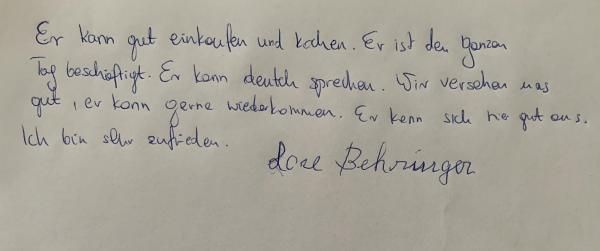 Er kann gut einkaufen und kochen. Er ist den ganzen
Tag beschäftigt. Er kann deutch sprechen. Wir versehen uns
gut, er kann gerne wiederkommen. Er kenn sich gut aus.
Ich bin sehr zufrieden.
Behringer